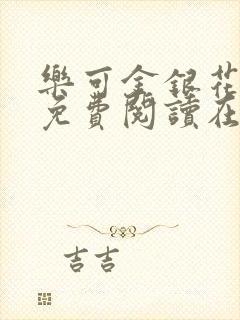 樂可金銀花
免費閱讀在
吉吉